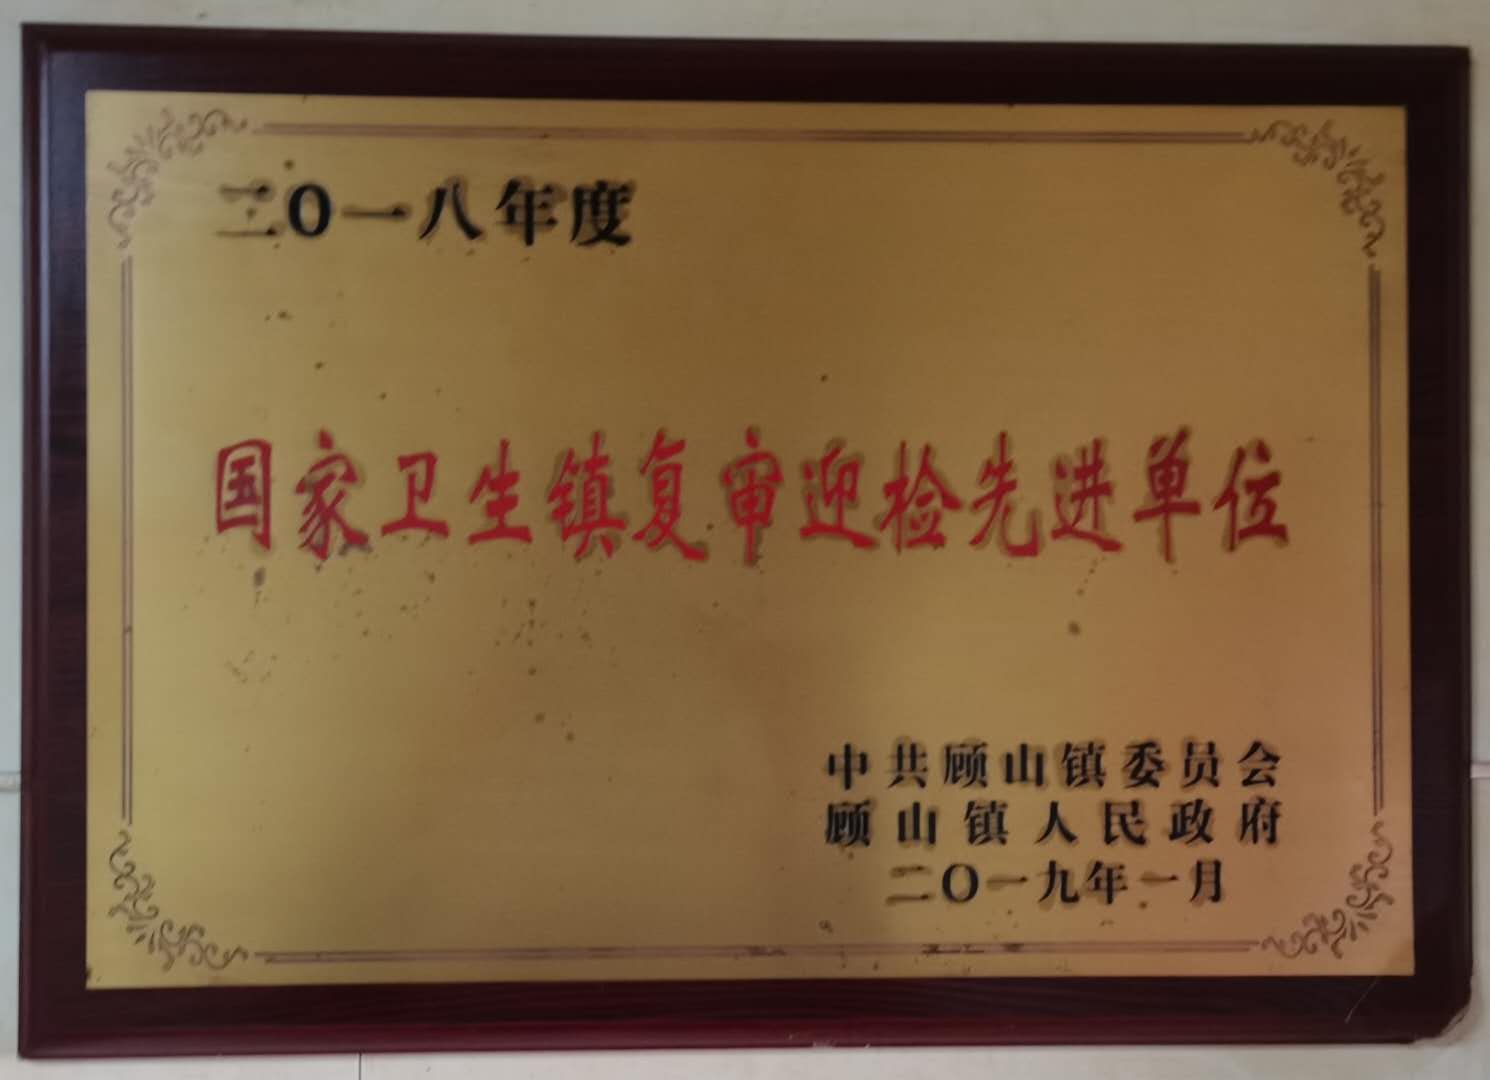 二〇一八年度
国家卫生镇复审迎检先进单位
中共顾山镇委员会
顾山镇人民政府
二〇一九年一月